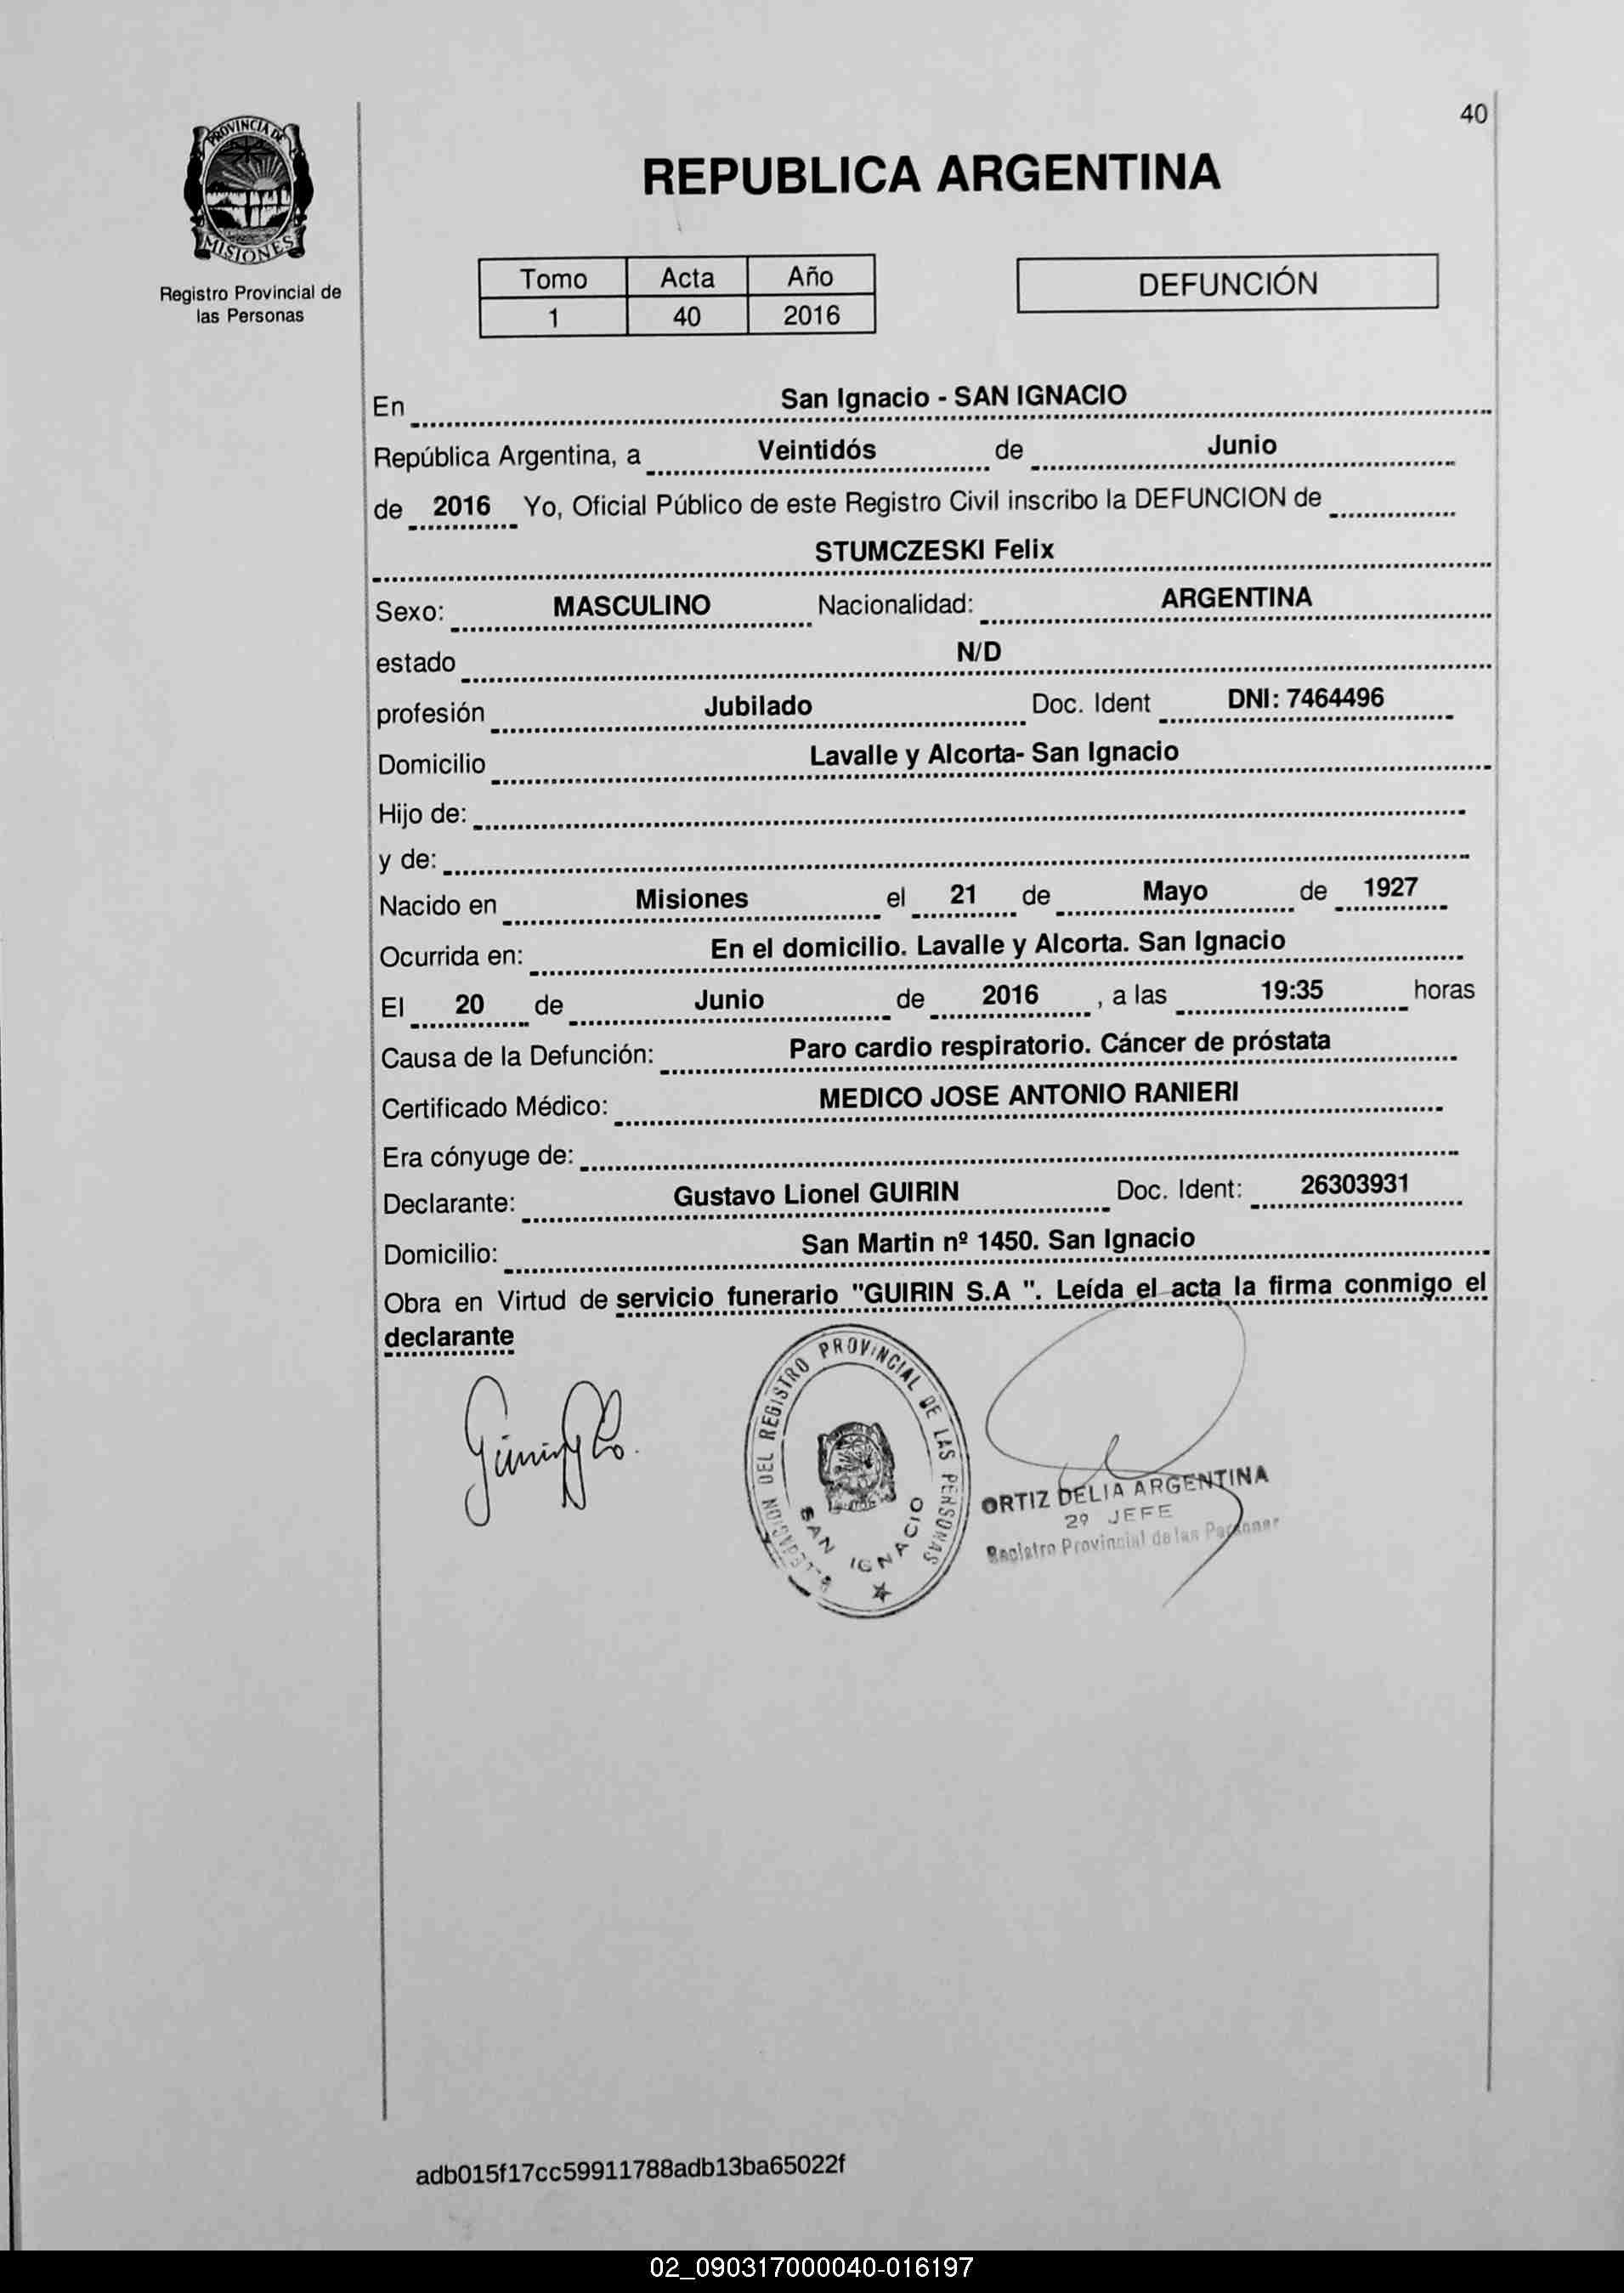 40
PROVINCIA DE
MISIONES
Registro Provincial de
las Personas
REPUBLICA ARGENTINA
Tomo Acta Año
1 40 2016
DEFUNCIÓN
En San Ignacio - SAN IGNACIO
República Argentina, a Veintidós de Junio
de 2016 Yo, Oficial Público de este Registro Civil inscribo la DEFUNCION de
STUMCZESKI Felix
Sexo: MASCULINO Nacionalidad: ARGENTINA
estado N/D
profesión Jubilado Doc. Ident DNI: 7464496
Domicilio Lavalle y Alcorta- San Ignacio
Hijo de:
y de:
Nacido en Misiones el 21 de Mayo de 1927
Ocurrida en: En el domicilio. Lavalle y Alcorta. San Ignacio
El 20 de Junio de 2016 , a las 19:35 horas
Causa de la Defunción: Paro cardio respiratorio. Cáncer de próstata
Certificado Médico: MEDICO JOSE ANTONIO RANIERI
Era cónyuge de:
Declarante: Gustavo Lionel GUIRIN Doc. Ident: 26303931
Domicilio: San Martin nº 1450. San Ignacio
Obra en Virtud de servicio funerario "GUIRIN S.A ". Leída el acta la firma conmigo el
declarante
DEL REGISTRO PROVINCIAL DE LAS PERSONAS
SAN IGNACIO
ORTIZ DELIA ARGENTINA
2º JEFE
Registro Provincial de las Personas
adb015f17cc59911788adb13ba65022f
02_090317000040-016197